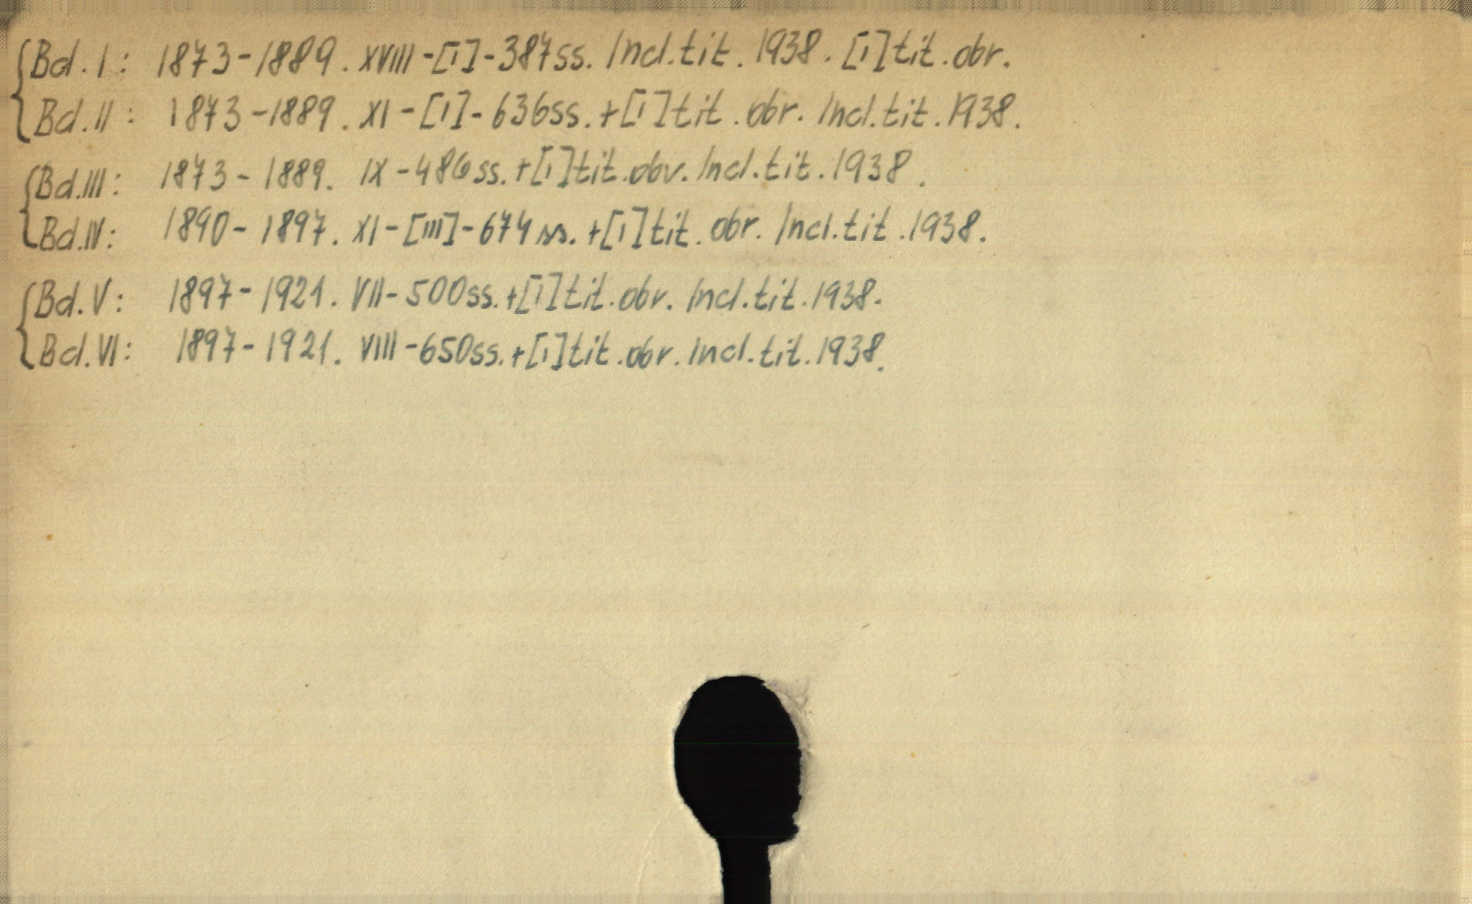 Bd. I: 1873-1889. XVIII-[I]-387ss. Incl. tit. 1938. [I] tit. obr.
Bd. II: 1873-1889. XI-[I]-636ss.+[I] tit. obr. Incl. tit. 1938.
Bd. III: 1873-1889. IX-486ss.+[I] tit. obr. Incl. tit. 1938.
Bd. IV: 1890-1897. XI-[III]-674ss.+[I] tit. obr. Incl. tit. 1938.
Bd. V: 1897-1921. VII-500ss.+[I] tit. obr. Incl. tit. 1938.
Bd. VI: 1897-1921. VIII-650ss.+[I] tit. obr. Incl. tit. 1938.